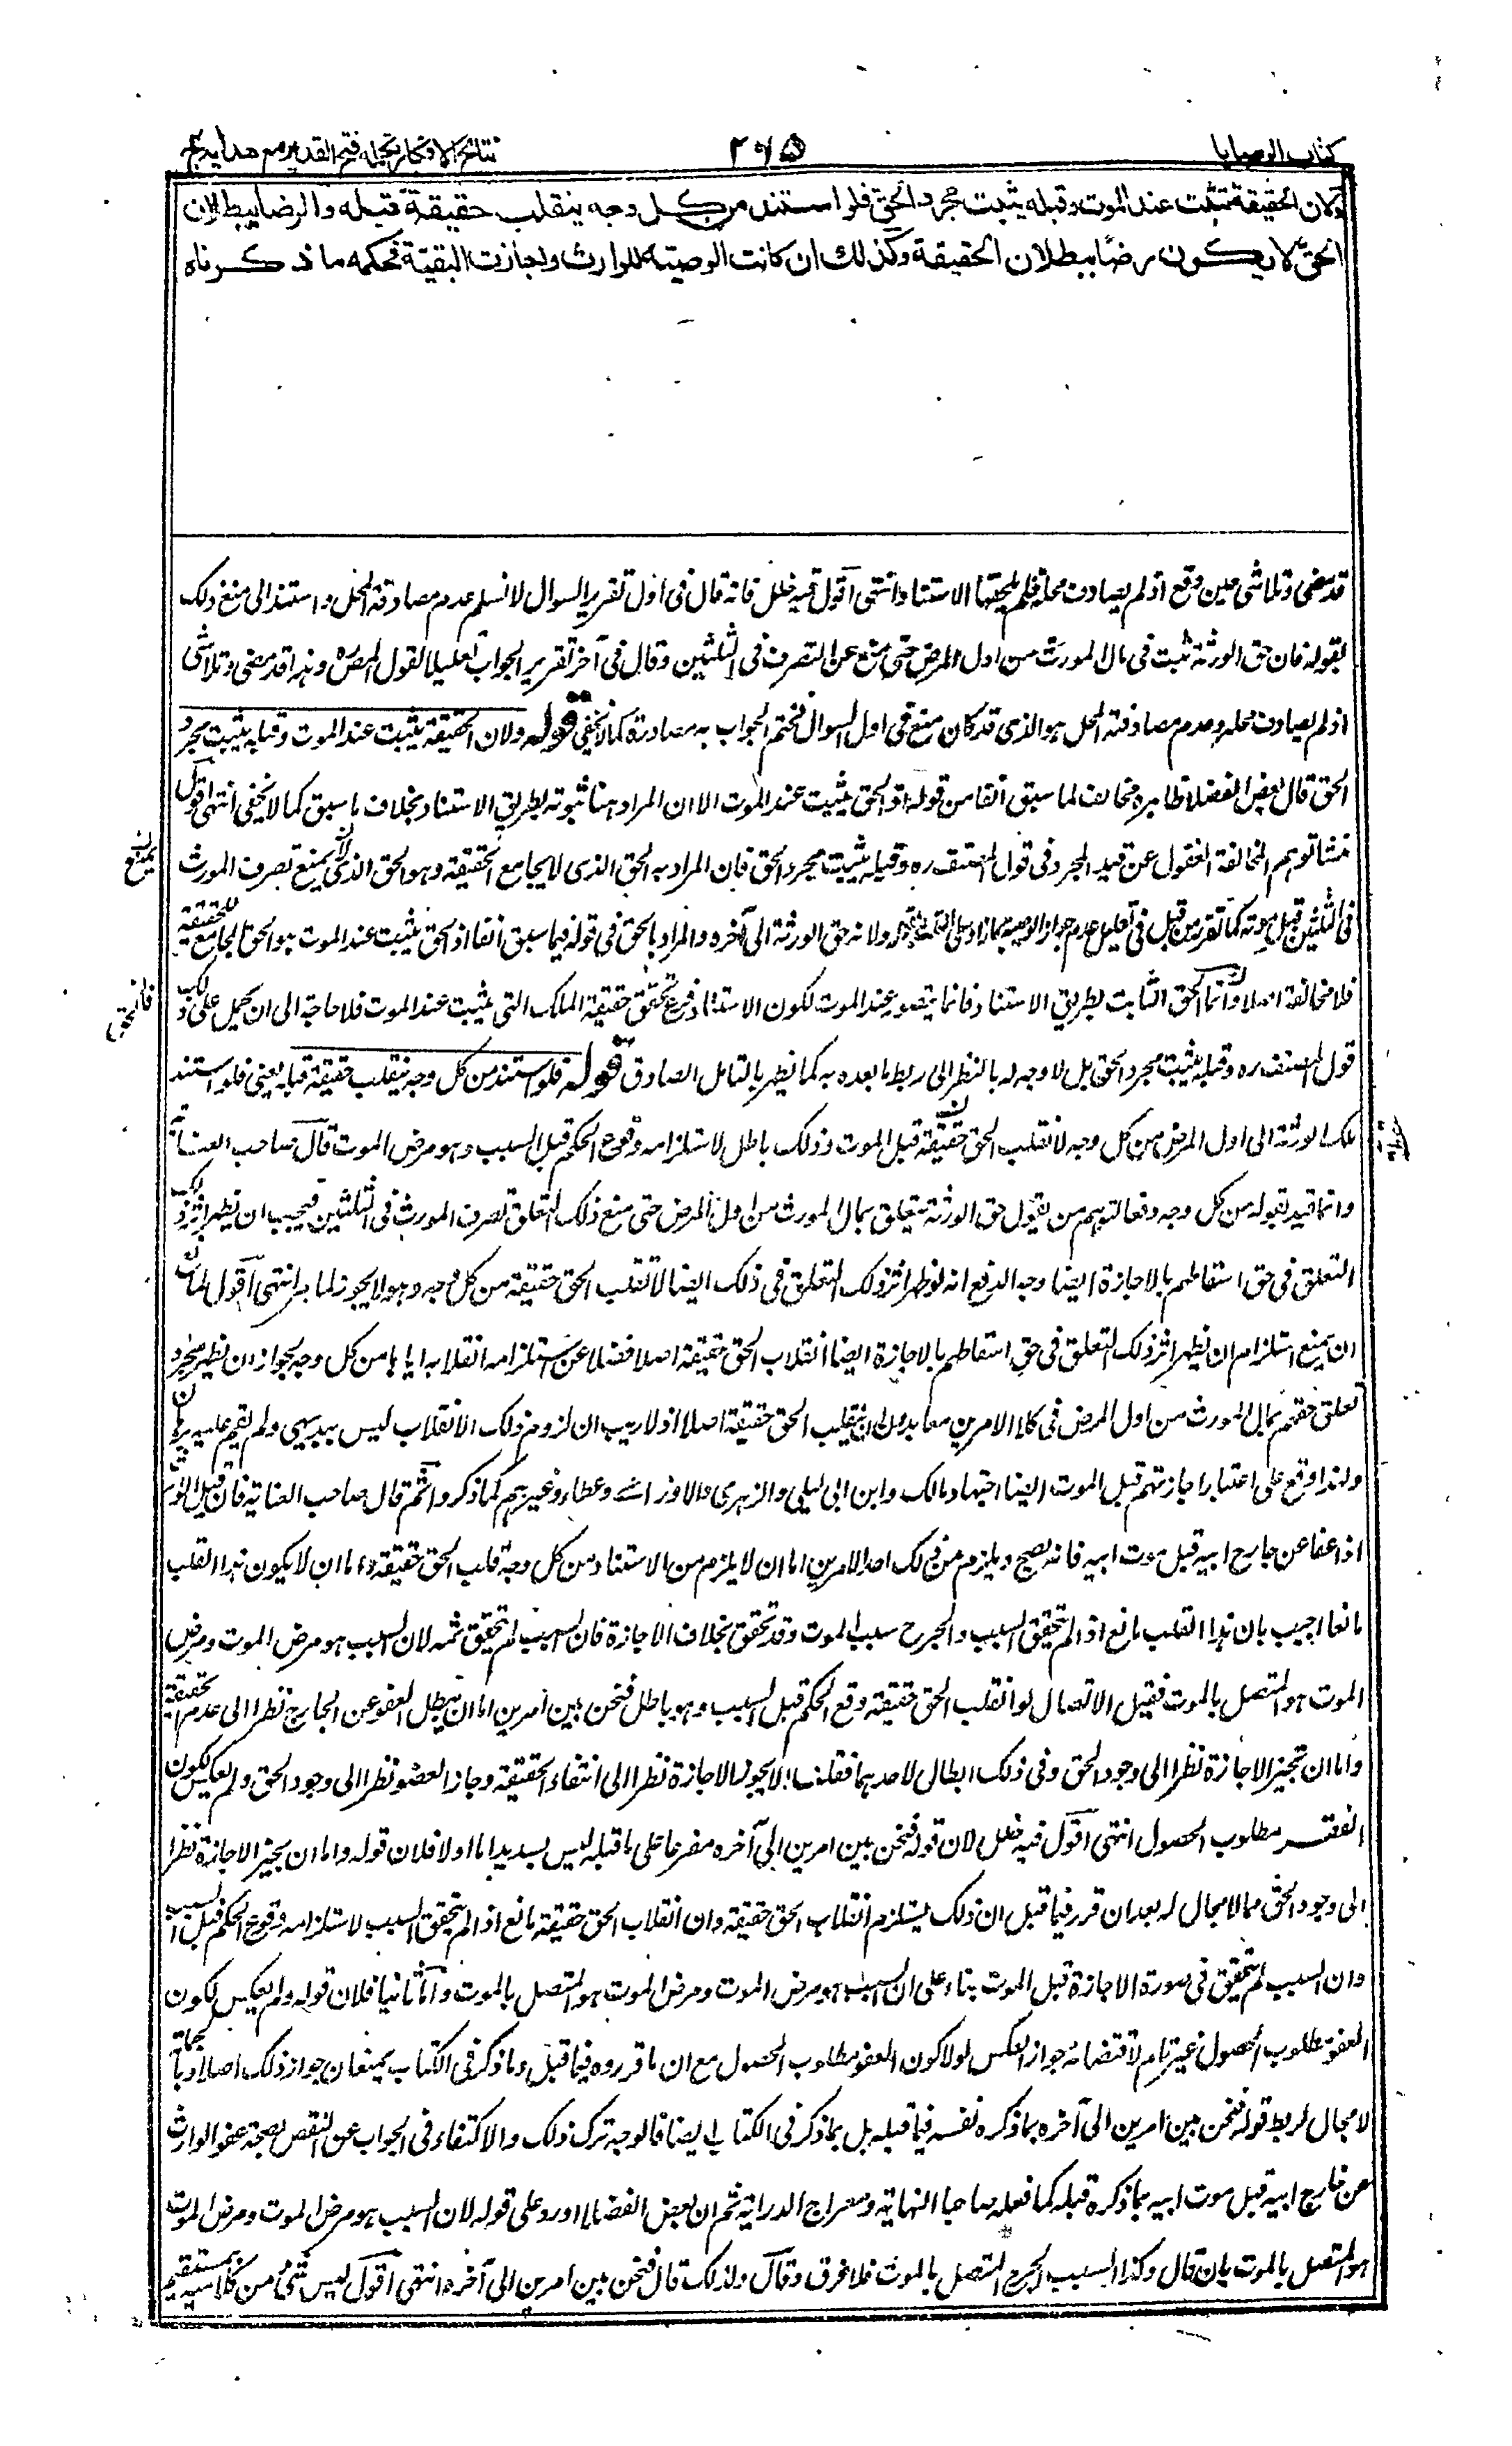 كتاب الوصايا
٢٦٥
نتائج الافكار تكملة فتح القدير مع هدايه ج
ولان الحقيقة تثبت عند الموت وقبله يثبت مجرد الحق فلو استند من كل وجه ينقلب حقيقة قبله والرضا ببطلان
الحق لا يكون رضا ببطلان الحقيقة وكذلك ان كانت الوصية للوارث واجازت البقية فحكمه ما ذكرناه
قد مضى وتلاشى حين وقع اذ لم يصادف محله فلم يلحقها الاستناد انتهى اقول فيه خلل فانه قال فى اول تقرير السوال لا نسلم عدم مصادفة المحل واستند الى منع ذلك
بقوله فان حق الورثة ثبت فى مال المورث من اول المرض حتى منع عن التصرف فى الثلثين وقال فى آخر تقرير الجواب تعليلا لقول المص ره وهذا قد مضى وتلاشى
اذ لم يصادف محله وعدم مصادفته المحل هو الذى قد كان منع فى اول السوال فختم الجواب به مصادرة كما لا يخفى قوله ولان الحقيقة تثبت عند الموت وقبله يثبت مجرد
الحق قال بعض الفضلا ظاهره مخالف لما سبق آنفا من قوله اذ الحق يثبت عند الموت الا ان المراد هنا ثبوته بطريق الاستناد بخلاف ما سبق كما لا يخفى انتهى اقول
منشا توهم المخالفة الغفول عن قيد المجرد فى قول المصنف ره وقبله يثبت مجرد الحق فان المراد به الحق الذى لا يجامع الحقيقة وهو الحق الذى يمنع تصرف المورث
فى الثلثين قبل موته كما تقرر من قبل فى تعليل عدم جواز الوصية بما زاد على الثلث بقوله ولانه حق الورثة الى آخره والمراد بالحق فى قوله فيما سبق آنفا اذ الحق يثبت عند الموت هو الحق المجامع للحقيقة
فلا مخالفة اصلا واما الحق الثابت بطريق الاستناد فانما يتصور عند الموت لكون الاستناد فرع تحقق حقيقة الملك التى تثبت عند الموت فلا حاجة الى ان يحمل على ذلك
قول المصنف ره وقبله يثبت مجرد الحق بل لا وجه له بالنظر الى ربط ما بعده به كما يظهر بالتامل الصادق قوله فلو استند من كل وجه ينقلب حقيقة قبله يعنى فلو استند
ملك الورثة الى اول المرض من كل وجه لانقلب الحق حقيقة قبل الموت وذلك باطل لاستلزامه وقوع الحكم قبل السبب وهو مرض الموت قال صاحب العناية
وانما قيد بقوله من كل وجه دفعا لتوهم من يقول حق الورثة يتعلق بمال المورث من اول المرض حتى منع ذلك التعلق تصرف المورث فى الثلثين فيجب ان يظهر اثر ذلك
التعلق فى حق اسقاطهم بالاجازة ايضا وجه الدفع انه لو ظهر اثر ذلك التعلق فى ذلك ايضا لانقلب الحق حقيقة من كل وجه وهو لا يجوز لما مر انتهى اقول لمانع
ان يمنع استلزام ان يظهر اثر ذلك التعلق فى حق اسقاطهم بالاجازة ايضا انقلاب الحق حقيقة اصلا فضلا عن استلزامه انقلابه اياها من كل وجه لجواز ان يظهر مجرد
تعلق حقهم بمال المورث من اول المرض فى كلا الامرين معا بدون ان ينقلب الحق حقيقة اصلا اذ لا ريب ان لزوم ذلك الانقلاب ليس ببديهى ولم يقم عليه برهان
ولهذا وقع على اعتبار اجازتهم قبل الموت ايضا اجتهاد مالك وابن ابى ليلى والزهرى والاوزاعى وعطاء وغيرهم كما ذكروا ثم قال صاحب العناية فان قيل الوارث
اذا عفا عن جارح ابيه قبل موت ابيه فانه يصح ويلزم من ذلك احد الامرين اما ان لا يلزم من الاستناد من كل وجه قلب الحق حقيقة واما ان لا يكون هذا القلب
مانعا اجيب بان هذا القلب مانع اذ لم يتحقق السبب والجرح سبب الموت وقد تحقق بخلاف الاجازة فان السبب لم يتحقق ثمه لان السبب هو مرض الموت ومرض
الموت هو المتصل بالموت فقبل الاتصال لو انقلب الحق حقيقة وقع الحكم قبل السبب وهو باطل فنحن بين امرين اما ان يبطل العفو عن الجارح نظرا الى عدم الحقيقة
واما ان تجيز الاجازة نظرا الى وجود الحق وفى ذلك ابطال لاحدهما فقلنا لا يجوز الاجازة نظرا الى انتفاء الحقيقة وجاز العفو نظرا الى وجود الحق ولم يعكس لكون
العفو مطلوب الحصول انتهى اقول فيه خلل لان قوله فنحن بين امرين الى آخره مفرعا على ما قبله ليس بسديد اما اولا فلان قوله واما ان يجيز الاجازة نظرا
الى وجود الحق مما لا مجال له بعد ان قرر فيما قبل ان ذلك يستلزم انقلاب الحق حقيقة وان انقلاب الحق حقيقة مانع اذا لم يتحقق السبب لاستلزامه وقوع الحكم قبل السبب
وان السبب لم يتحقق فى صورة الاجازة قبل الموت بناء على ان السبب هو مرض الموت ومرض الموت هو المتصل بالموت واما ثانيا فلان قوله ولم يعكس لكون
العفو مطلوب الحصول غير تام لاقتضائه جواز العكس لولا كون العفو مطلوب الحصول مع ان ما قرروه فيما قبل وما ذكر فى الكتاب يمنعان جواز ذلك اصلا وبالجملة
لا مجال لربط قوله فنحن بين امرين الى آخره بما ذكره نفسه فيما قبله بل بما ذكر فى الكتاب ايضا فالوجه ترك ذلك والاكتفاء فى الجواب عن النقض بصحة عفو الوارث
عن جارح ابيه قبل موت ابيه بما ذكره قبله كما فعله صاحبا النهاية ومعراج الدراية ثم ان بعض الفضلا اورد على قوله لان السبب هو مرض الموت ومرض الموت
هو المتصل بالموت بان قال وكذا السبب الجرح المتصل بالموت فلا فرق وقال ولذلك قال فنحن بين امرين الى آخره انتهى اقول ليس شئ من كلاميه بمستقيم